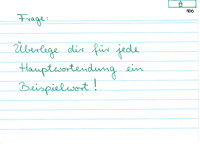 6
Frage:
Überlege dir für jede
Hauptwortendung ein
Beispielwort!